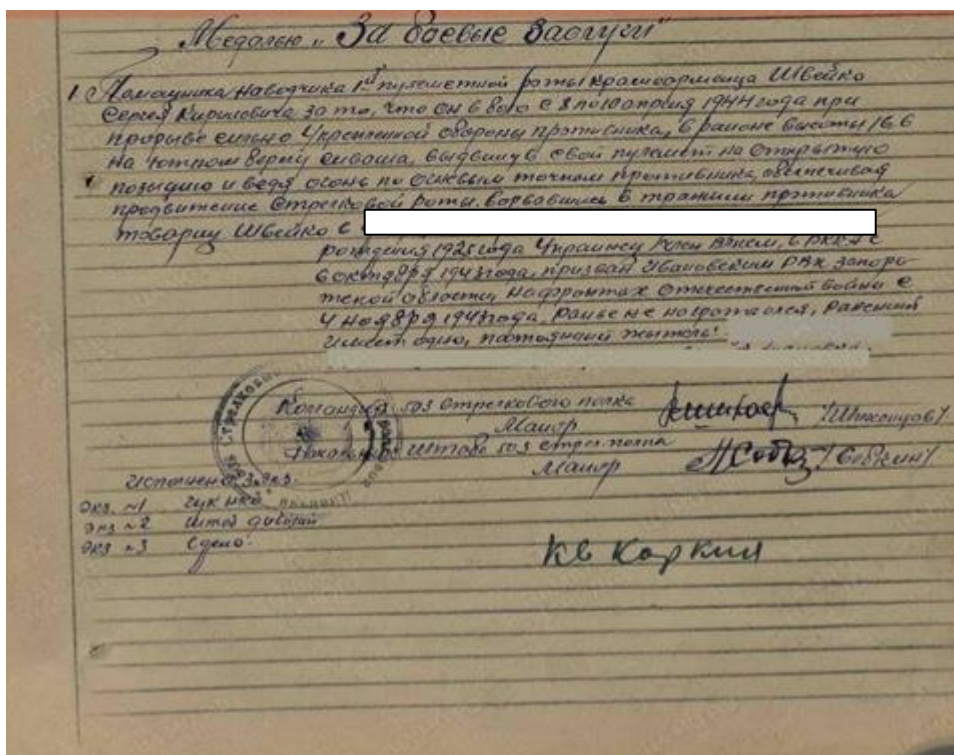 Медалью „За боевые заслуги"
1. Помощника наводчика 1ой пулеметной роты красноармейца Швейко
Сергея Кириловича за то, что он в бою с 8 по 10 апреля 1944 года при
прорыве сильно укрепленной обороны противника, в районе высоты 16.6
на южном берегу Сиваша, выдвинув свой пулемет на открытую
позицию и ведя огонь по огневым точкам противника, обеспечивая
продвижение стрелковой роты. Ворвавшись в траншеи противника
товарищ Швейко в
рождения 1925 года украинец член ВЛКСМ, в РККА с
6 октября 1943 года, призван Ивановским РВК Запоро
жской области, на фронтах Отечественной войны с
4 ноября 1943 года, ранее не награжался, ранений
имеет одно, постоянный житель:
Командир 503 стрелкового полка
Майор
Начальник штаба 503 стрел. полка
Майор /Собкин/.
Исполнено 3 экз.
экз. №1
экз №2 штаб дивизии
экз №3 в дело.
Кв Коркин